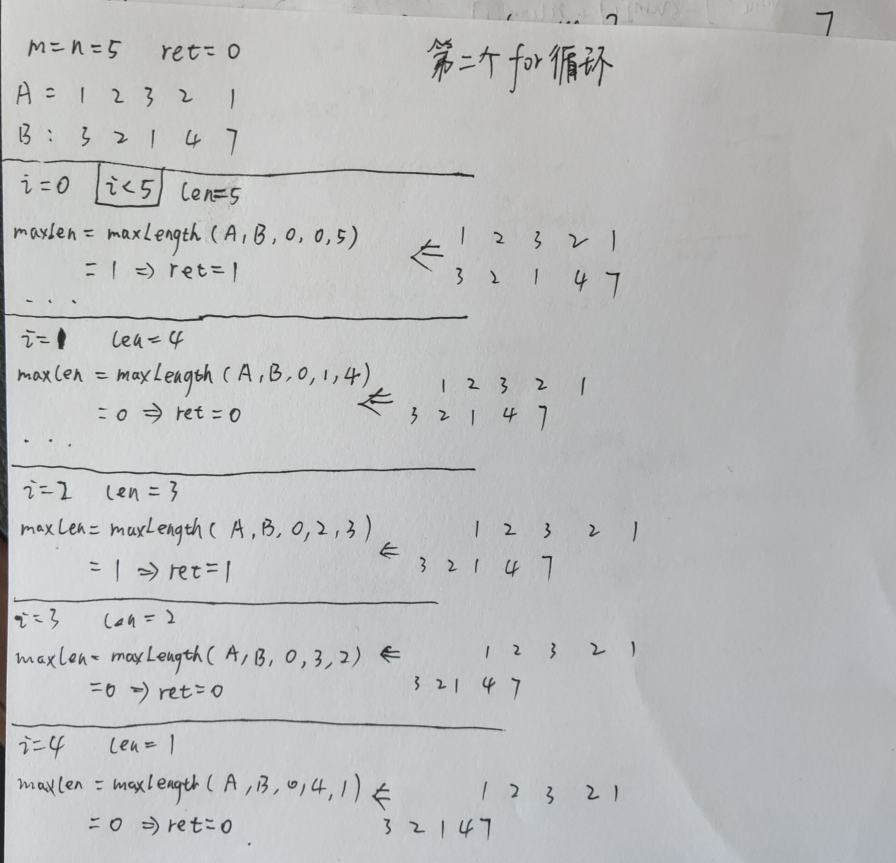 7
m=n=5 ret=0 第二个for循环
A = 1 2 3 2 1
B : 3 2 1 4 7
i=0 i<5 len=5
maxlen = maxLength (A, B, 0, 0, 5) ⇐ 1 2 3 2 1
= 1 ⇒ ret=1 3 2 1 4 7
...
i=1 len=4
maxlen = maxLength (A, B, 0, 1, 4) ⇐ 1 2 3 2 1
= 0 ⇒ ret=0 3 2 1 4 7
...
i=2 len=3
maxLen= maxLength( A, B, 0, 2, 3) ⇐ 1 2 3 2 1
= 1 ⇒ ret=1 3 2 1 4 7
i=3 len=2
maxLen= maxLength( A, B, 0, 3, 2) ⇐ 1 2 3 2 1
=0 ⇒ ret=0 3 2 1 4 7
i=4 len=1
maxlen = maxLength (A, B, 0, 4, 1) ⇐ 1 2 3 2 1
= 0 ⇒ ret=0 3 2 1 4 7